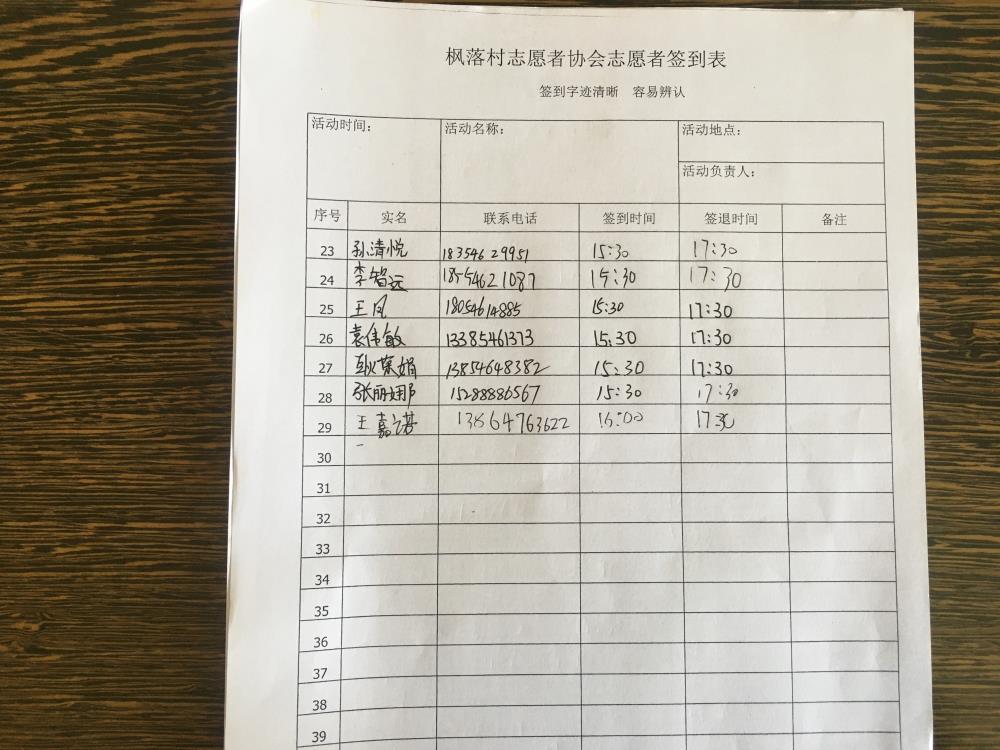 枫落村志愿者协会志愿者签到表
签到字迹清晰 容易辨认
活动时间： 活动名称： 活动地点：
活动负责人：
序号 实名 联系电话 签到时间 签退时间 备注
23 孙清悦 18354629951 15:30 17:30
24 李智远 18554621087 15:30 17:30
25 王凤 18054614885 15:30 17:30
26 袁伟敏 13385461373 15:30 17:30
27 耿荣娟 13854648382 15:30 17:30
28 张丽娜 15288886567 15:30 17:30
29 王嘉诺 13864763622 16:00 17:30
30
31
32
33
34
35
36
37
38
39